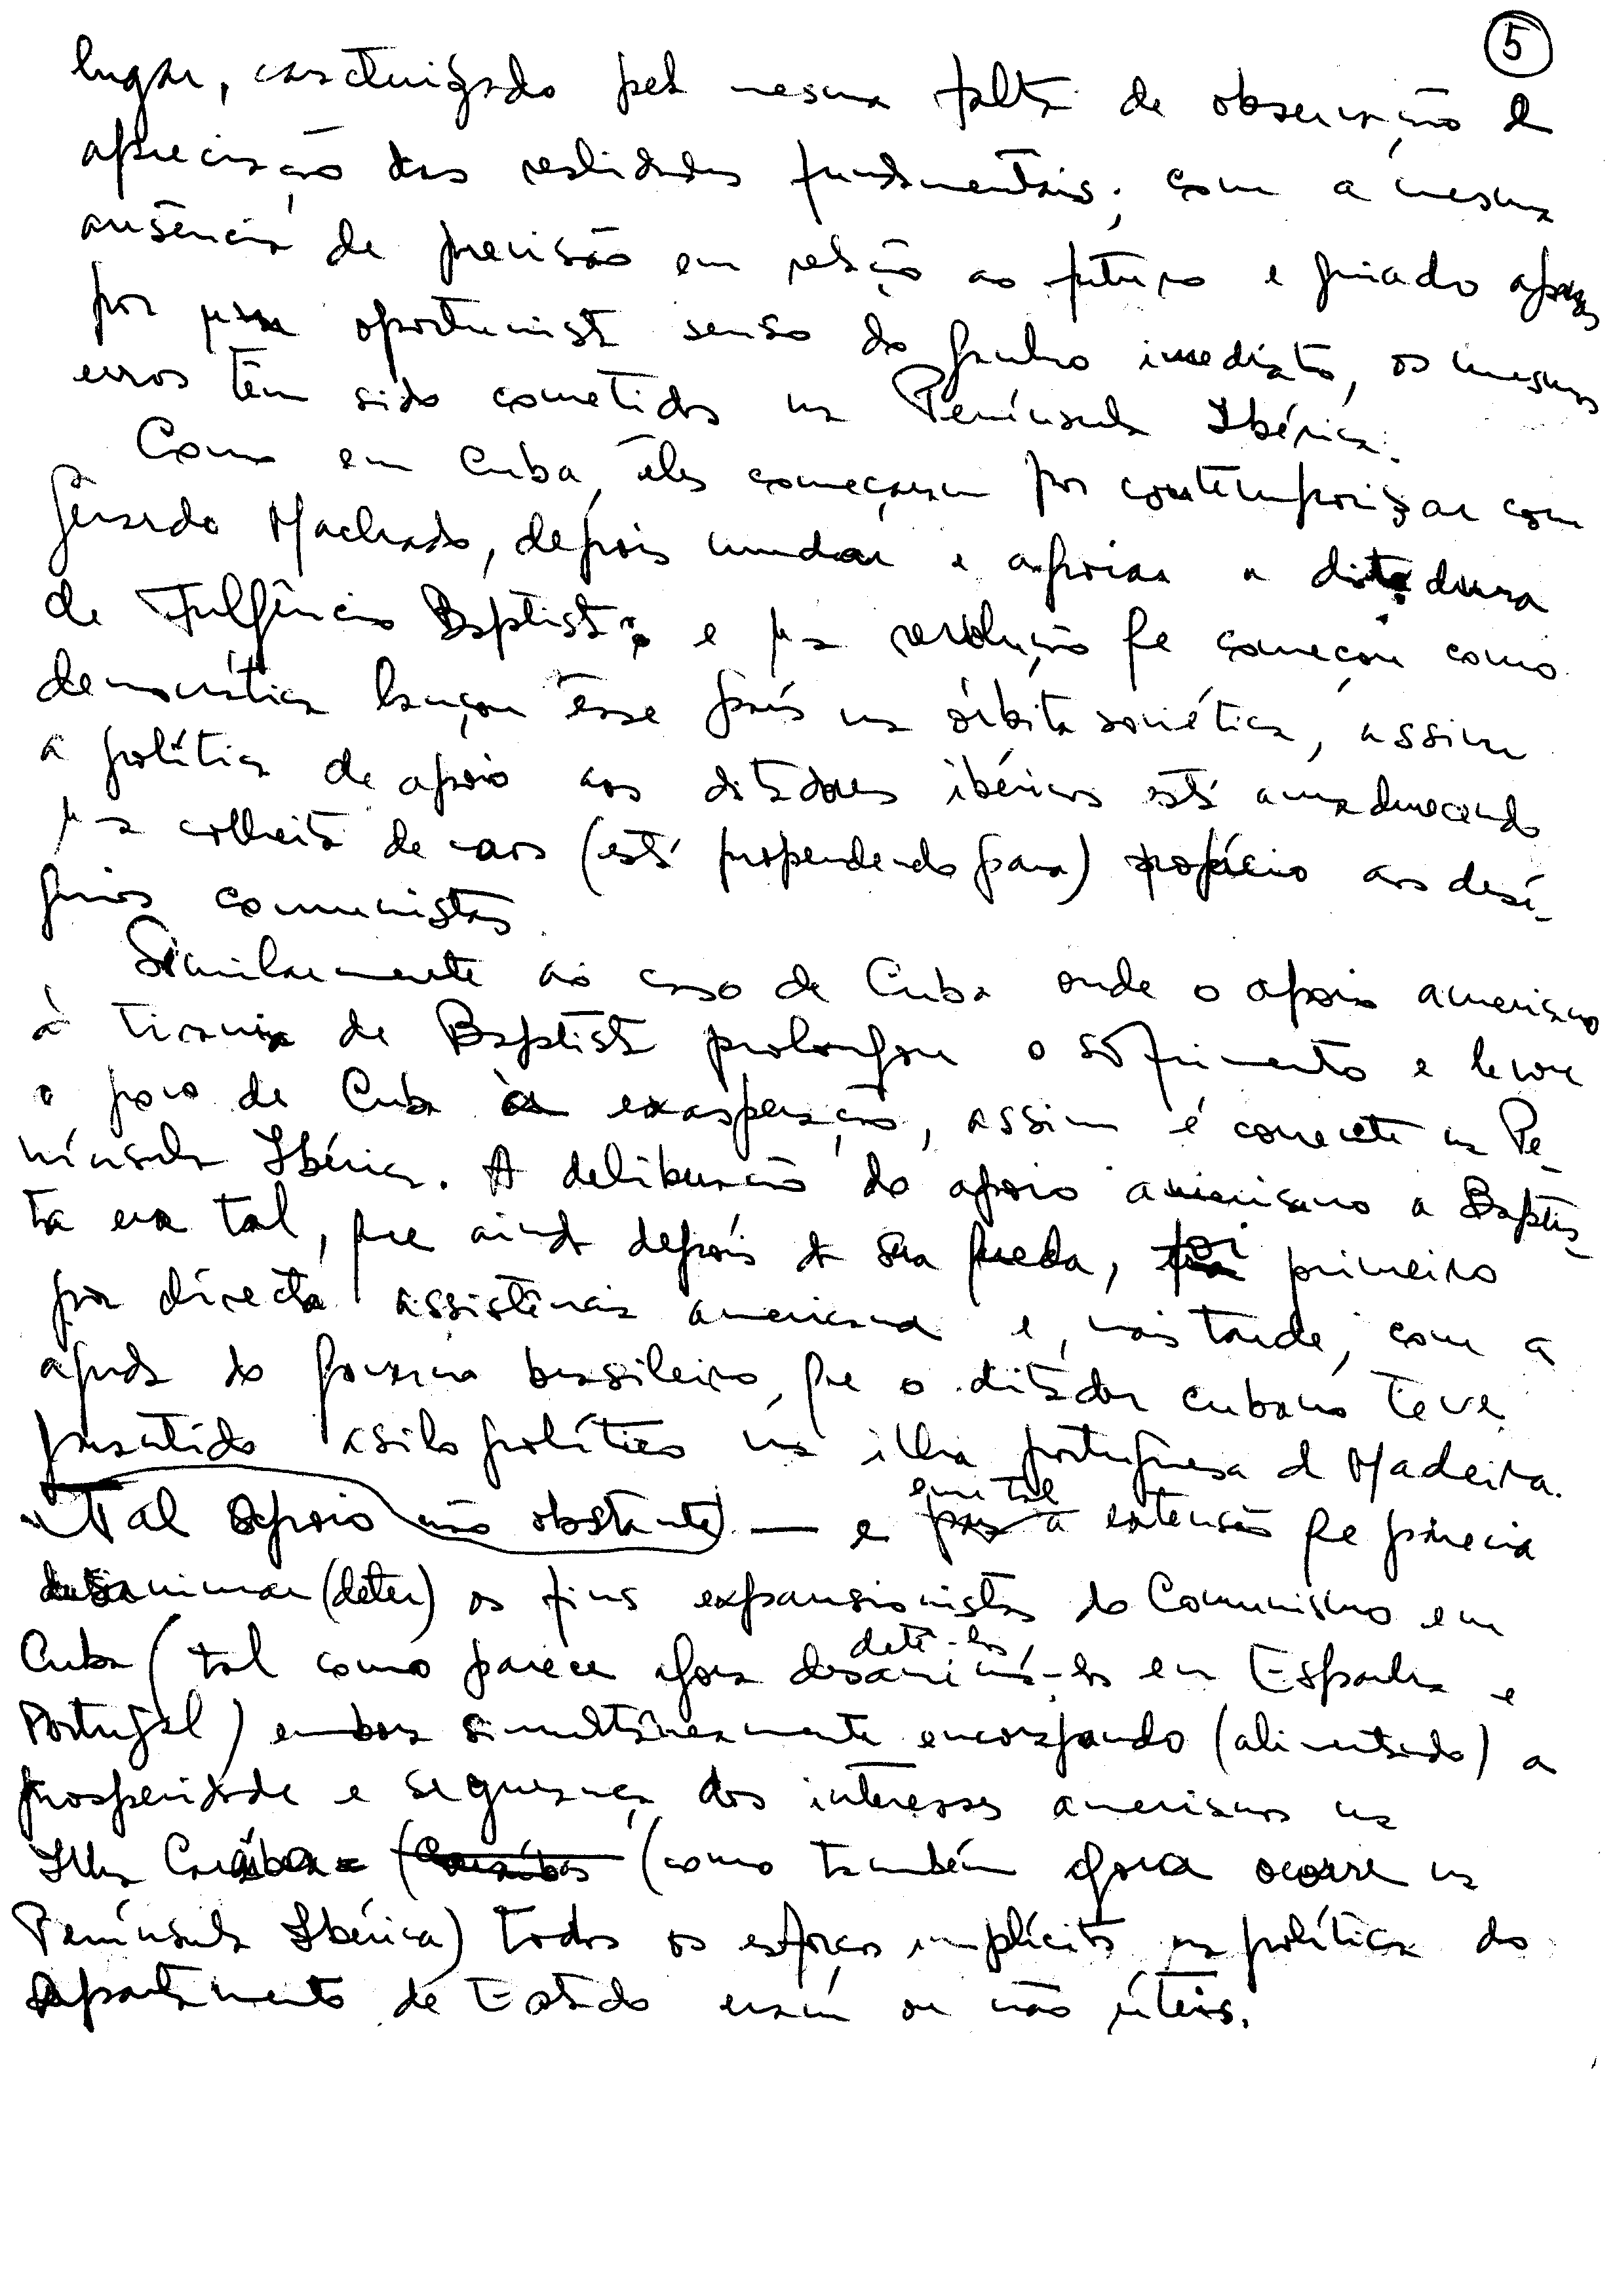 5
lugar, caracterizado pela mesma falta de observação e
apreciação das realidades fundamentais; com a mesma
ausência de previsão em relação ao futuro e guiado apenas
por um oportunista senso do ganho imediato, os mesmos
erros têm sido cometidos na Península Ibérica.
Como em Cuba, êles começaram por contemporizar com
Gerardo Machado, depois mudar e apoiar a ditadura
de Fulgêncio Baptista, e uma revolução que começou como
democrática lançou êsse país na órbita soviética, assim
a política de apoio aos ditadores ibéricos está amadurecendo
uma colheita de caos (está propendendo para) propício aos desí-
gnios comunistas.
Similarmente ao caso de Cuba onde o apoio americano
à tirania de Baptista prolongou o sofrimento e levou
o povo de Cuba à exasperação, assim é corrente na Pe-
nínsula Ibérica. A deliberação do apoio americano a Baptis-
ta era tal, que ainda depois da sua queda, foi primeiro
por directa assistência americana e, mais tarde, com a
ajuda do govêrno brasileiro, que o ditador cubano teve
garantido asilo político na ilha portuguesa da Madeira.
Tal apoio não obstante — e em tal extensão que parecia
desanimar (deter) os fins expansionistas do Comunismo em
Cuba (tal como parece agora detê-los desanimá-los em Espanha e
Portugal) embora simultâneamente encorajando (alimentando) a
prosperidade e segurança dos interesses americanos na
Ilha Caraíba (Caraíbas (como também agora ocorre na
Península Ibérica) todos os esforços implícitos na política do
Departamento de Estado eram ou não úteis.